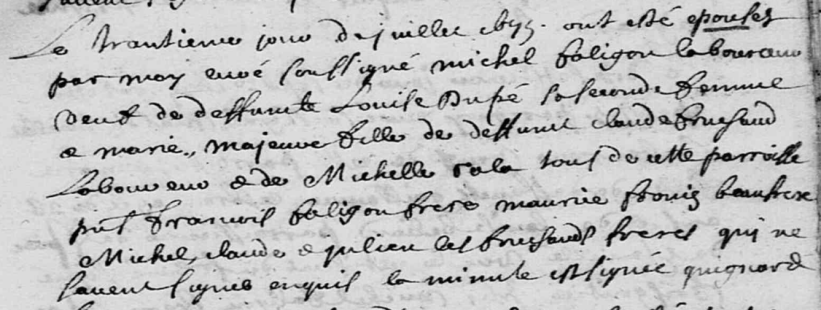 Le trantieme jour de juillet ont esté epousez
par moy curé soussigné michel faligon laboureur
veuf de deffunte Louise Dupé sa seconde femme
& marie majeure fille de deffunt claude
Laboureur & de Michelle tous de cette parroisse
pnt francois faligon frere maurice beaufrere
Michel, claude & julien les freres qui ne
savent signer enquis la minute est signée guignard